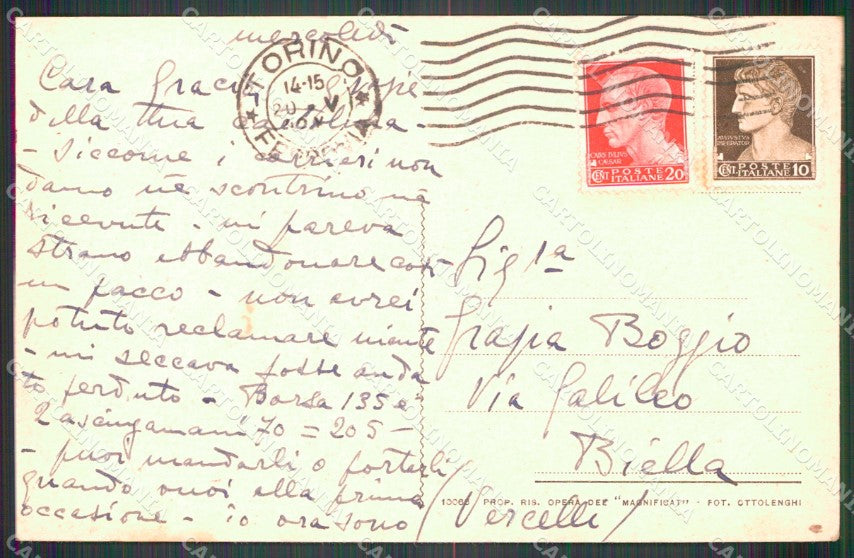 mercoledì
Cara Grazia Grazie
della tua cartolina -
- Siccome i corrieri non
danno nè scontrino nè
ricevute - mi pareva
strano abbandonare così
un pacco - non avrei
potuto reclamare niente
- mi seccava fosse anda
to perduto - Borsa 135 e
2 asciugamani 70 = 205 -
- puoi mandarli o portarli
quando vuoi alla prima
occasione - io ora sono
TORINO
14-15
20 V
FERROVIA
CAIVS IVLIVS
CAESAR
CENT POSTE ITALIANE 20
AVGVSTVS
IMPERATOR
CENT POSTE ITALIANE 10
Sig.na
Grazia Boggio
Via Galileo
Biella
(Vercelli)
13086 PROP. RIS. OPERA DEL "MAGNIFICAT" - FOT. OTTOLENGHI
CARTOLINOMANIA